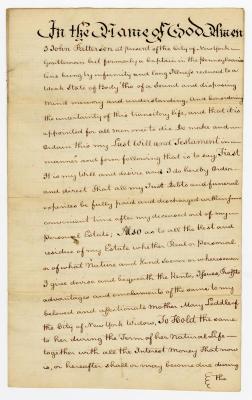 In the Name of God Amen
I John Patterson at present of the City of New York
Gentleman but formerly a Captain in the Pennsylvania
Line being by infirmity and long Illness reduced to a
Weak State of Body tho of a Sound and disposing
Mind memory and understanding And considering
the uncertainty of this transitory life, and that it is
appointed for all men once to die Do make and
Ordain this my Last Will and Testament in
manner and form following that is to say First
It is my Will and desire and I do hereby Order
and direct That all my Just Debts and funeral
expences be fully paid and discharged within some
convenient time after my decease out of my
Personal Estate; Also as to all the Rest and
residue of my Estate whether Real or Personal
or of what Nature and Kind soever or wheresoever
I give devise and bequeath the Rents, Issues, Profits
advantages and emoluments of the same to my
beloved and affectionate Mother Mary Liddle of
the City of New York Widow, To Hold the same
to her during the Term of her Natural Life
together with all the Interest Money that now
is, or hereafter shall or may become due during
the